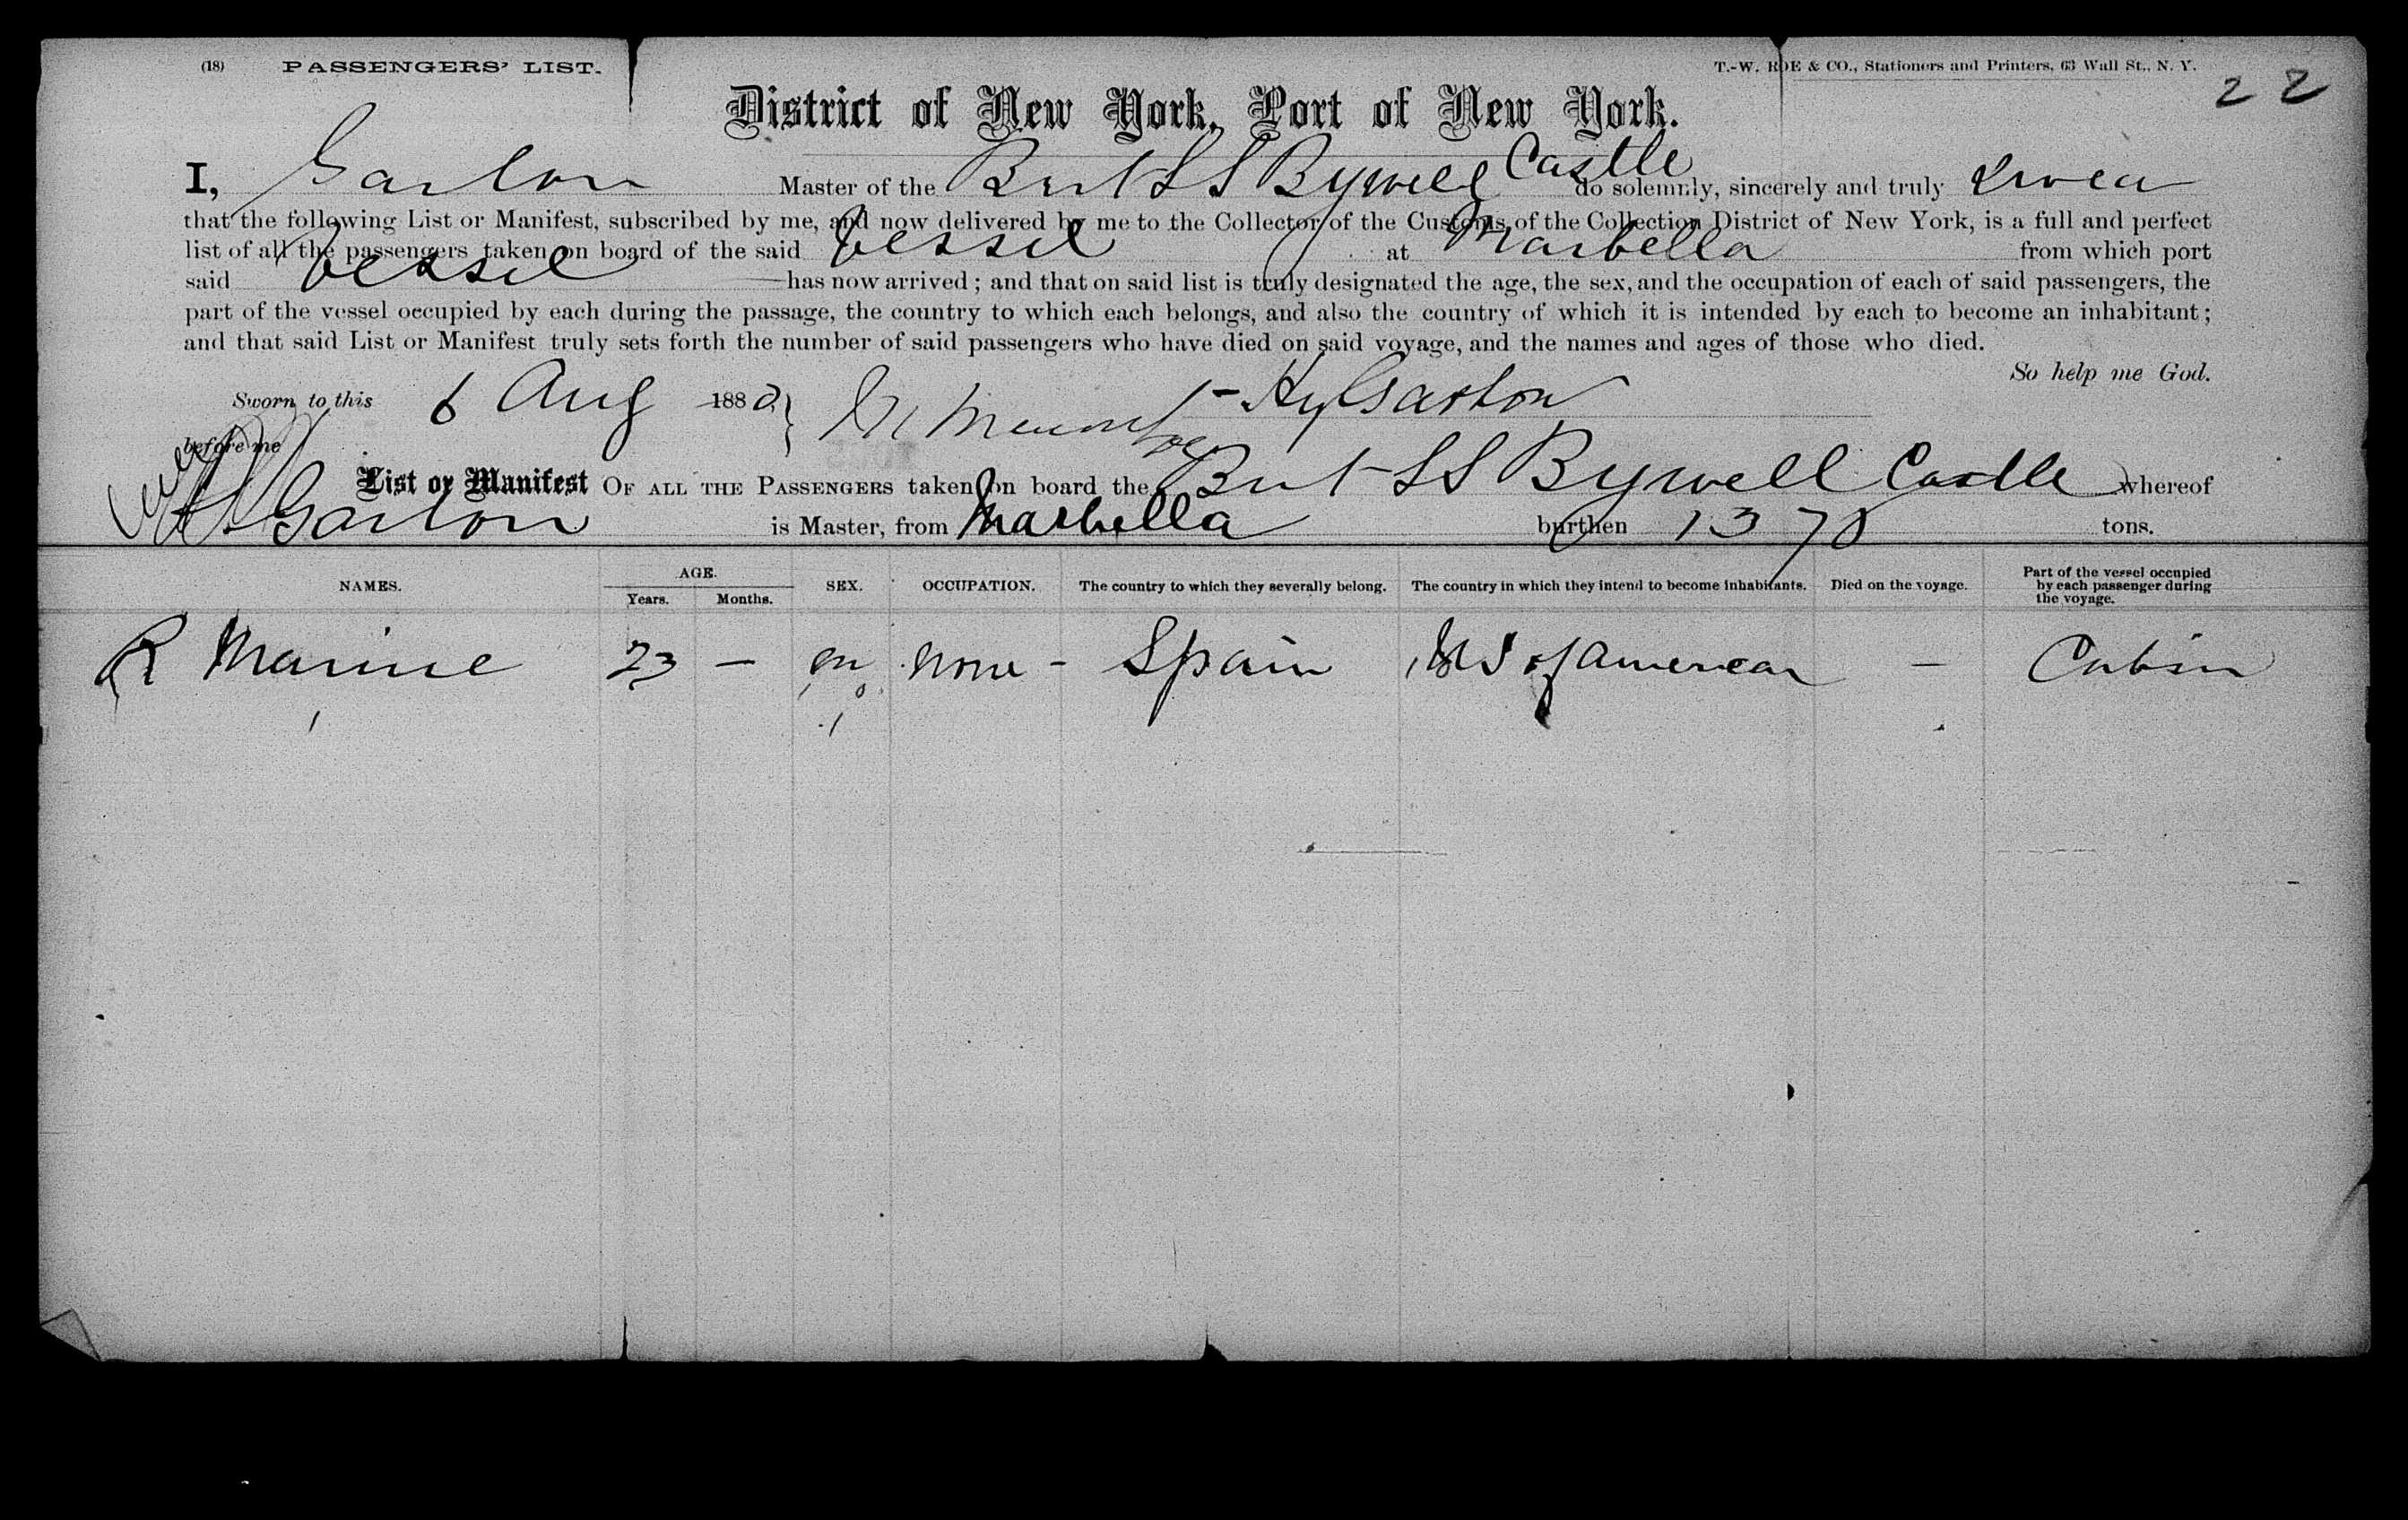 (18) PASSENGERS' LIST. T.-W. ROE & CO., Stationers and Printers, 63 Wall St., N. Y.
22
District of New York, Port of New York.
I, Garlon Master of the Brit SS Bywell Castle do solemnly, sincerely and truly swear
that the following List or Manifest, subscribed by me, and now delivered by me to the Collector of the Customs of the Collection District of New York, is a full and perfect
list of all the passengers taken on board of the said Vessel at Marbella from which port
said Vessel has now arrived; and that on said list is truly designated the age, the sex, and the occupation of each of said passengers, the
part of the vessel occupied by each during the passage, the country to which each belongs, and also the country of which it is intended by each to become an inhabitant;
and that said List or Manifest truly sets forth the number of said passengers who have died on said voyage, and the names and ages of those who died.
So help me God.
Sworn to this 6 Aug 1880 Hy Garlon
before me
List or Manifest OF ALL THE PASSENGERS taken on board the Brit SS Bywell Castle whereof
Garlon is Master, from Marbella burthen 1370 tons.
NAMES. AGE. Years. Months. SEX. OCCUPATION. The country to which they severally belong. The country in which they intend to become inhabitants. Died on the voyage. Part of the vessel occupied by each passenger during the voyage.
R Marine 23 — m none - Spain US of America — Cabin